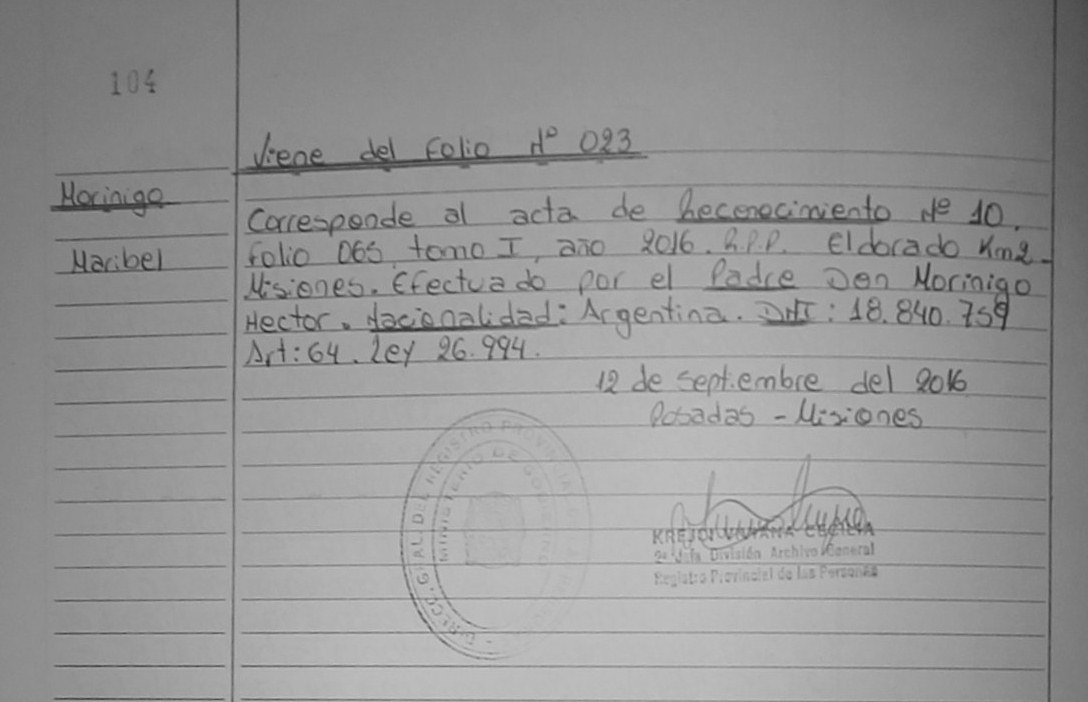 104
Viene del Folio N° 023
Morinigo
Corresponde al acta de Reconocimiento N° 10.
Maribel
Folio 065 tomo I, año 2016. R.P.P. Eldorado Km2-
Misiones. Efectuado por el Padre Don Morinigo
Hector. Nacionalidad: Argentina. DNI: 18.840.759
Art: 64. Ley 26.994.
12 de septiembre del 2016
Posadas - Misiones
DIRECC. GRAL. DEL REGISTRO PROVINCIAL
MINISTERIO DE GOBIERNO
CECILIA
División Archivo General
Registro Provincial de las Personas